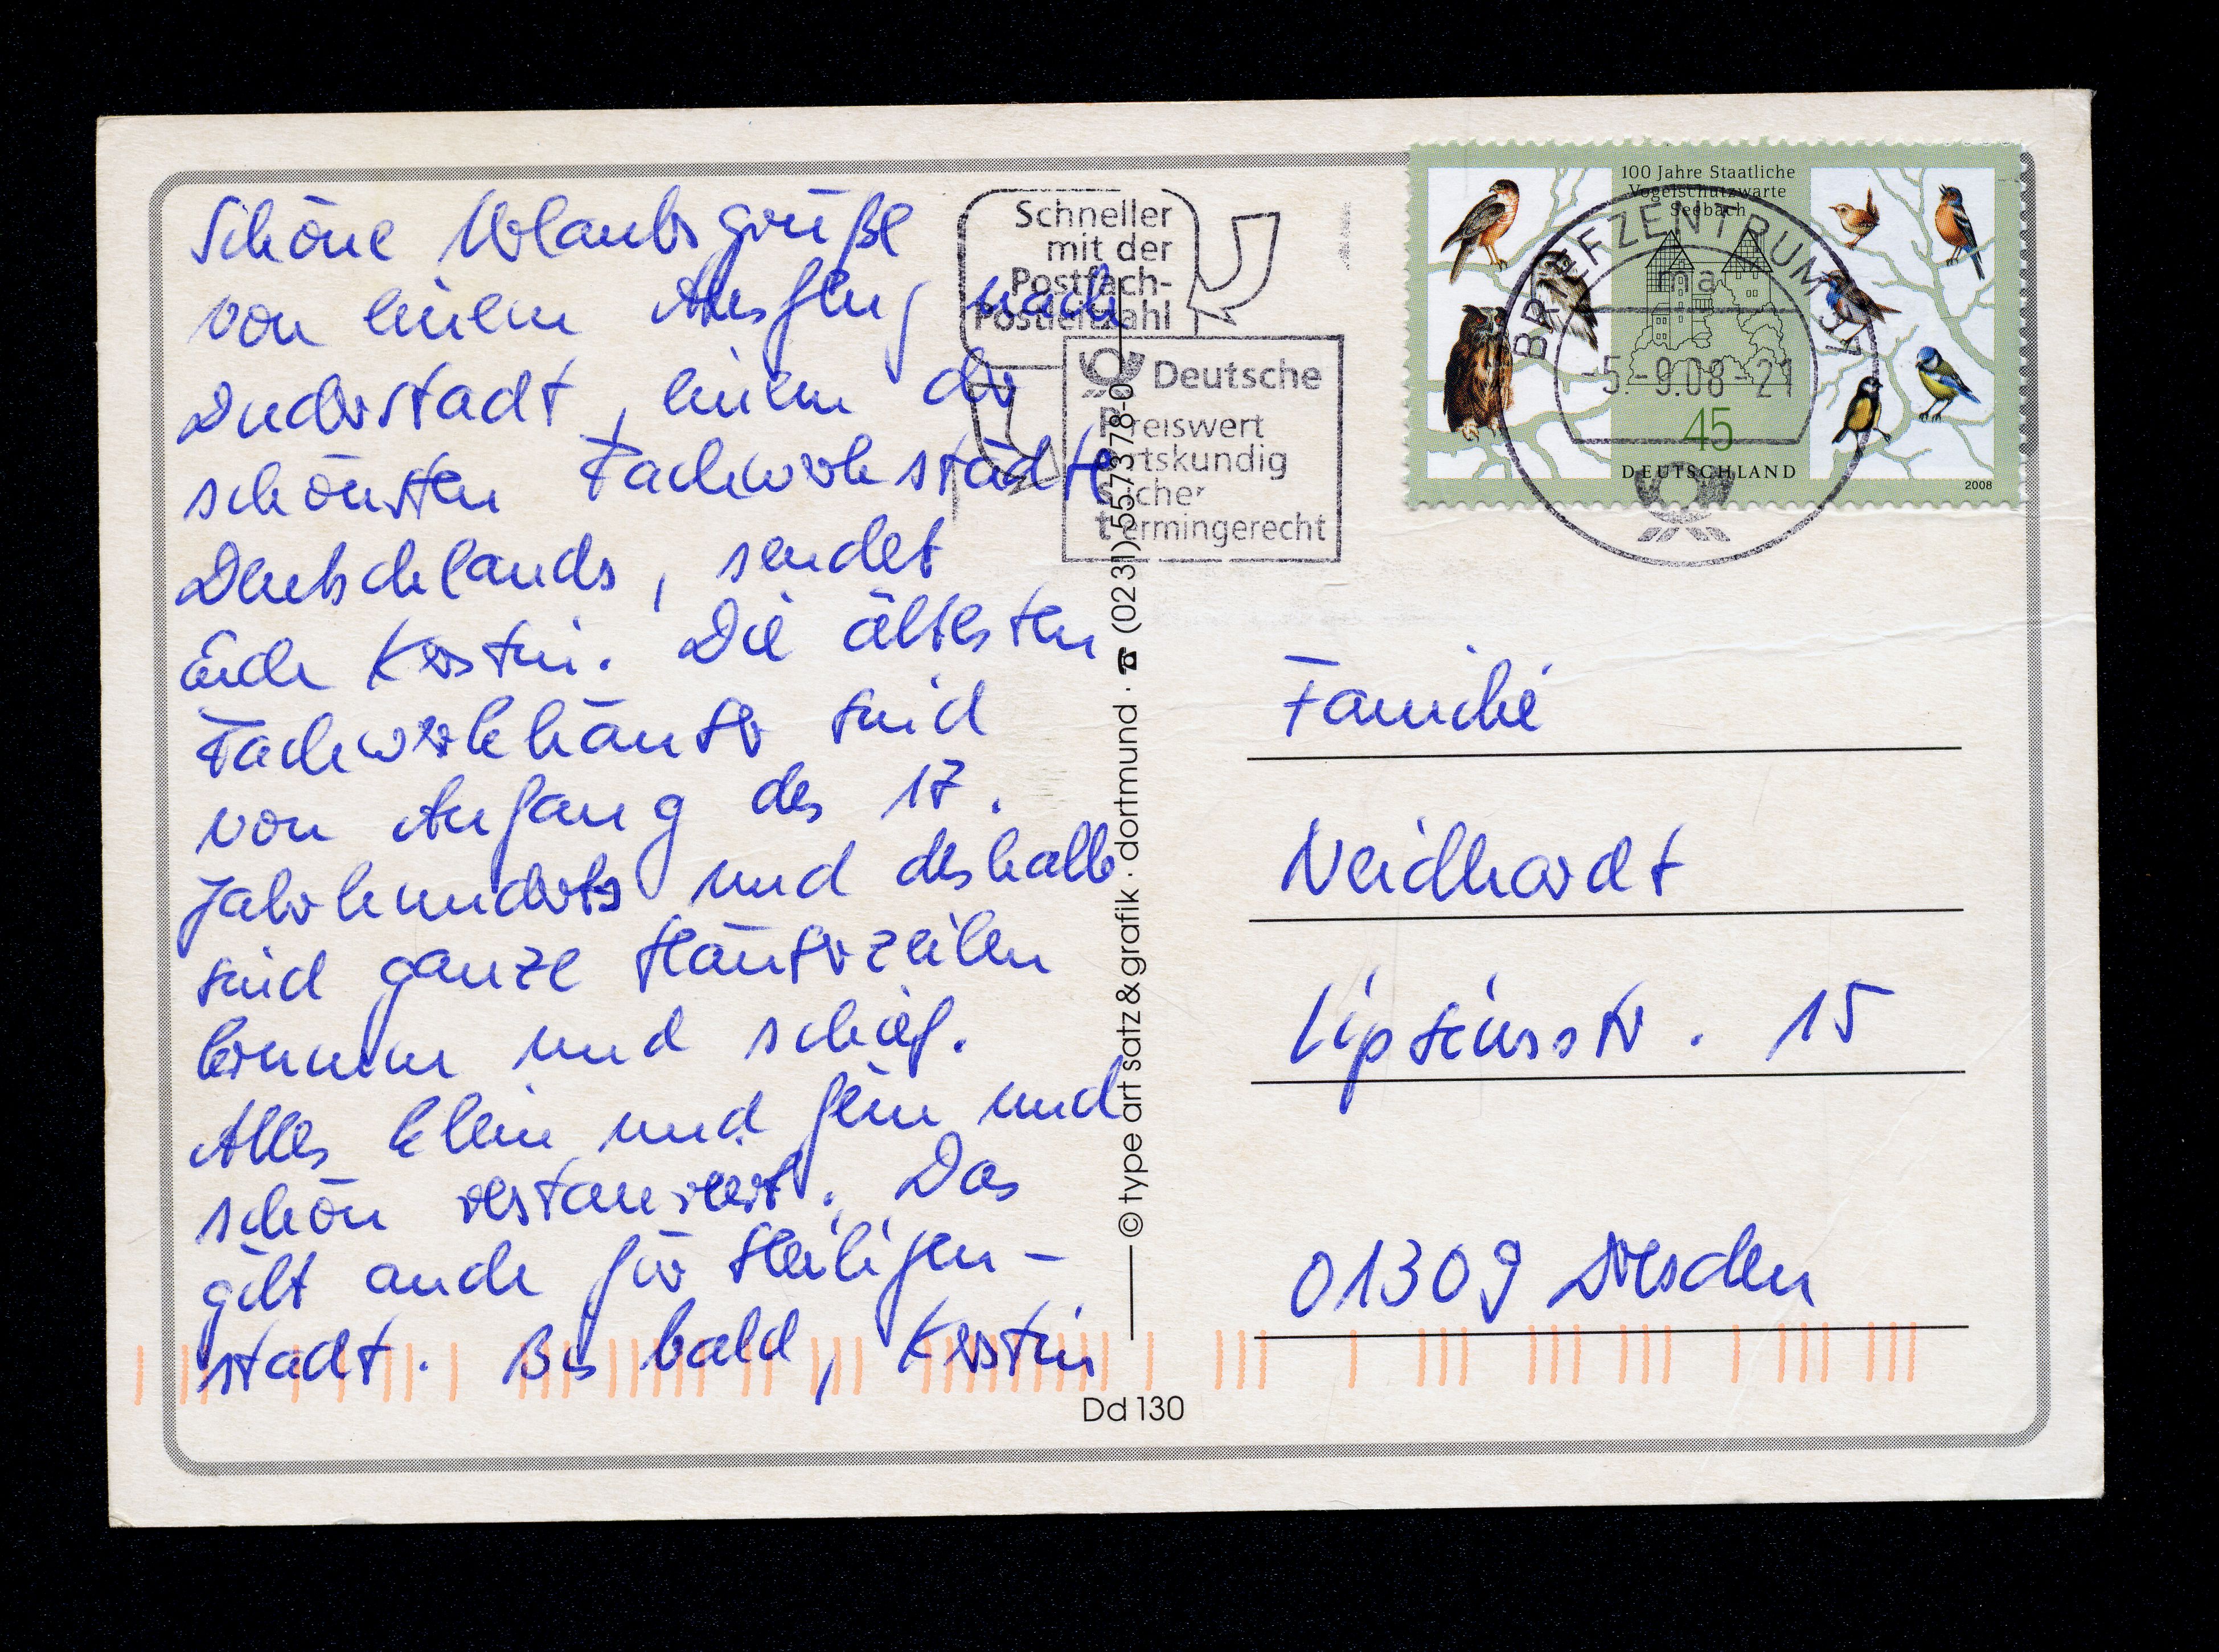 Schöne Urlaubsgrüße
von einem Ausflug nach
Duderstadt, einem der
schönsten Fachwerkstädte
Deutschlands, sendet
Euch Kerstin. Die ältesten
Fachwerkhäuser sind
von Anfang des 17.
Jahrhunderts und deshalb
sind ganze Häuserzeilen
krumm und schief.
Alles klein und fein und
schön restauriert. Das
gilt auch für Heiligen-
stadt. Bis bald, Kerstin
Schneller
mit der
Postfach-
Postleitzahl
Deutsche
Preiswert
Ortskundig
Sicher
termingerecht
100 Jahre Staatliche
Vogelschutzwarte
Seebach
BRIEFZENTRUM 37
ma
-5.-9.08-21
45
DEUTSCHLAND
2008
© type art satz & grafik · dortmund · ☎ (0231) 557378-0
Familie
Neidhardt
Lipsiusstr. 15
01309 Dresden
Dd 130